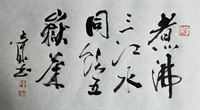 煮沸
三江水
同饮五
嶽茶